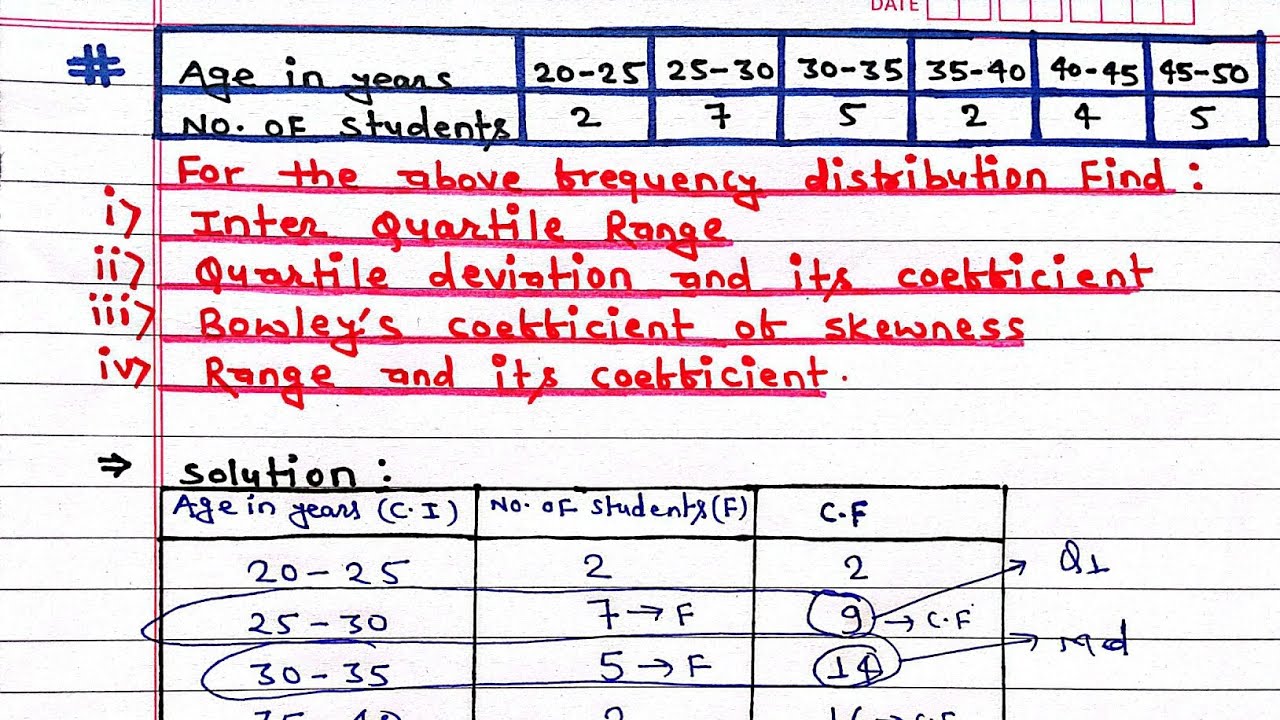 DATE
# Age in years 20-25 25-30 30-35 35-40 40-45 45-50
No. OF students 2 7 5 2 4 5
For the above frequency distribution Find :
i) Inter Quartile Range
ii) Quartile deviation and its coefficient
iii) Bowley's coefficient of skewness
iv) Range and its coefficient.
⇒ Solution :
Age in years (C.I) No. OF students (F) C.F
20-25 2 2 → Q1
25-30 7 → F 9 → C.F
30-35 5 → F 14 → Md